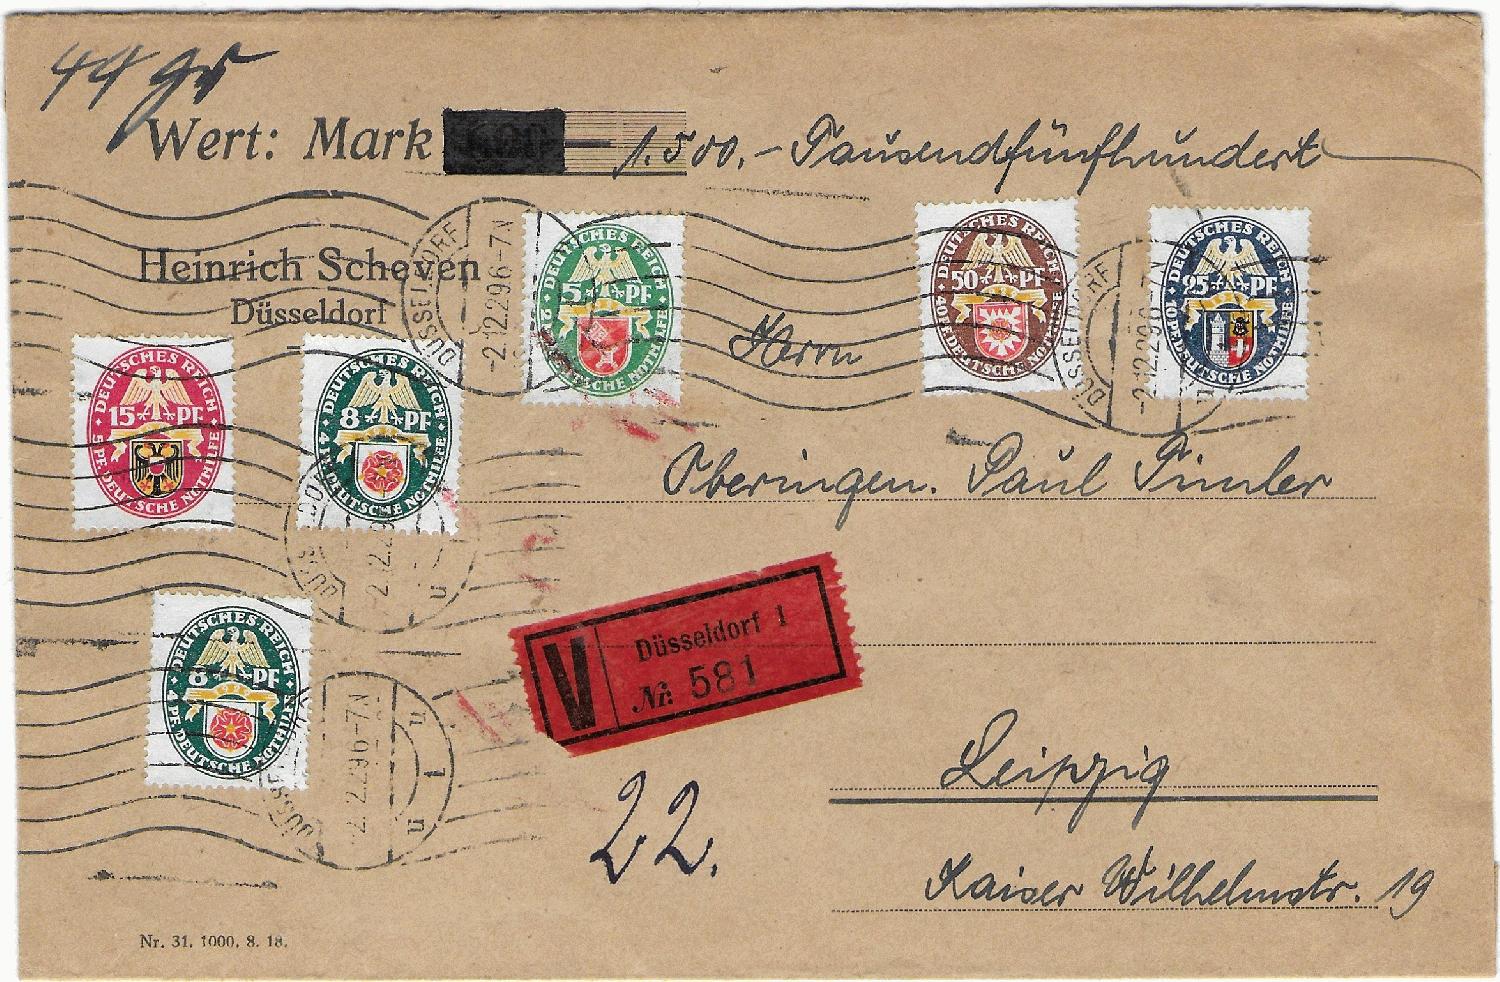 44 gr
Wert: Mark 1.500.- Tausendfünfhundert
Heinrich Scheven
Düsseldorf
DÜSSELDORF
-2.12.29.6-7N
DEUTSCHES REICH
5 PF
2 PF. DEUTSCHE NOTHILFE
DEUTSCHES REICH
50 PF
40 PF. DEUTSCHE NOTHILFE
DÜSSELDORF
-2.12.29.6-7N
DEUTSCHES REICH
25 PF
10 PF. DEUTSCHE NOTHILFE
Herrn
DEUTSCHES REICH
15 PF
5 PF. DEUTSCHE NOTHILFE
DEUTSCHES REICH
8 PF
4 PF. DEUTSCHE NOTHILFE
Oberingen. Paul Timler
V
Düsseldorf 1
Nr. 581
DEUTSCHES REICH
8 PF
4 PF. DEUTSCHE NOTHILFE
u 1 u
Leipzig
22.
Kaiser Wilhelmstr. 19
Nr. 31. 1000. 8. 18.